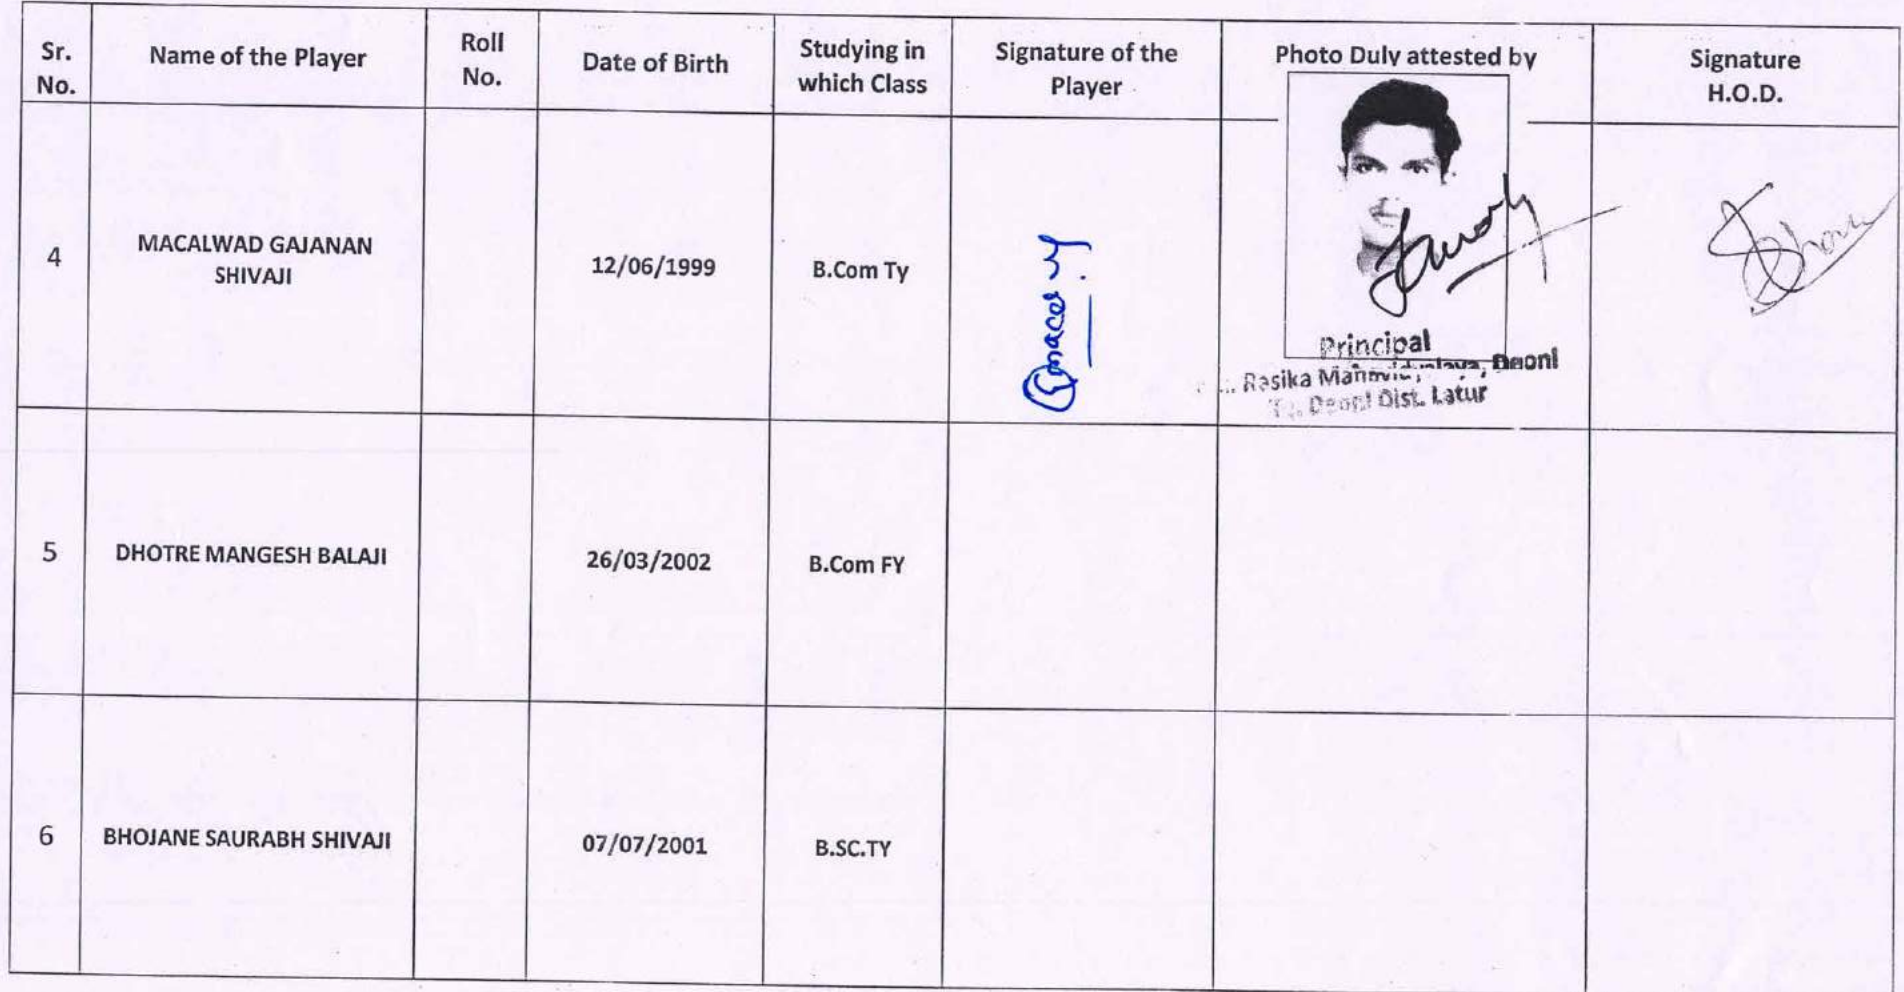 Sr. No.
Name of the Player
Roll No.
Date of Birth
Studying in which Class
Signature of the Player
Photo Duly attested by
Signature H.O.D.
4
MACALWAD GAJANAN
SHIVAJI
12/06/1999
B.Com Ty
Principal
Rasika Deoni
Deoni Dist. Latur
5
DHOTRE MANGESH BALAJI
26/03/2002
B.Com FY
6
BHOJANE SAURABH SHIVAJI
07/07/2001
B.SC.TY